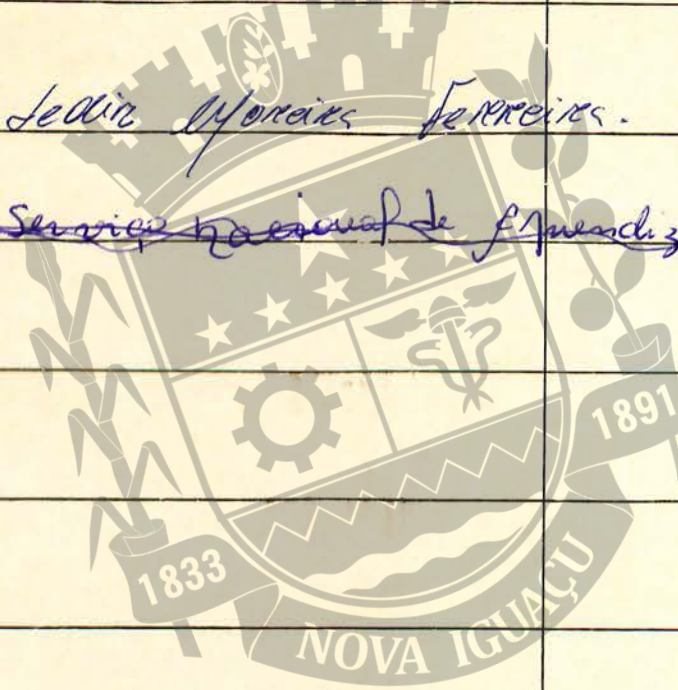 Moreira Ferreira.
Serviço Nacional de Aprendiz
1891
1833
NOVA IGUAÇU